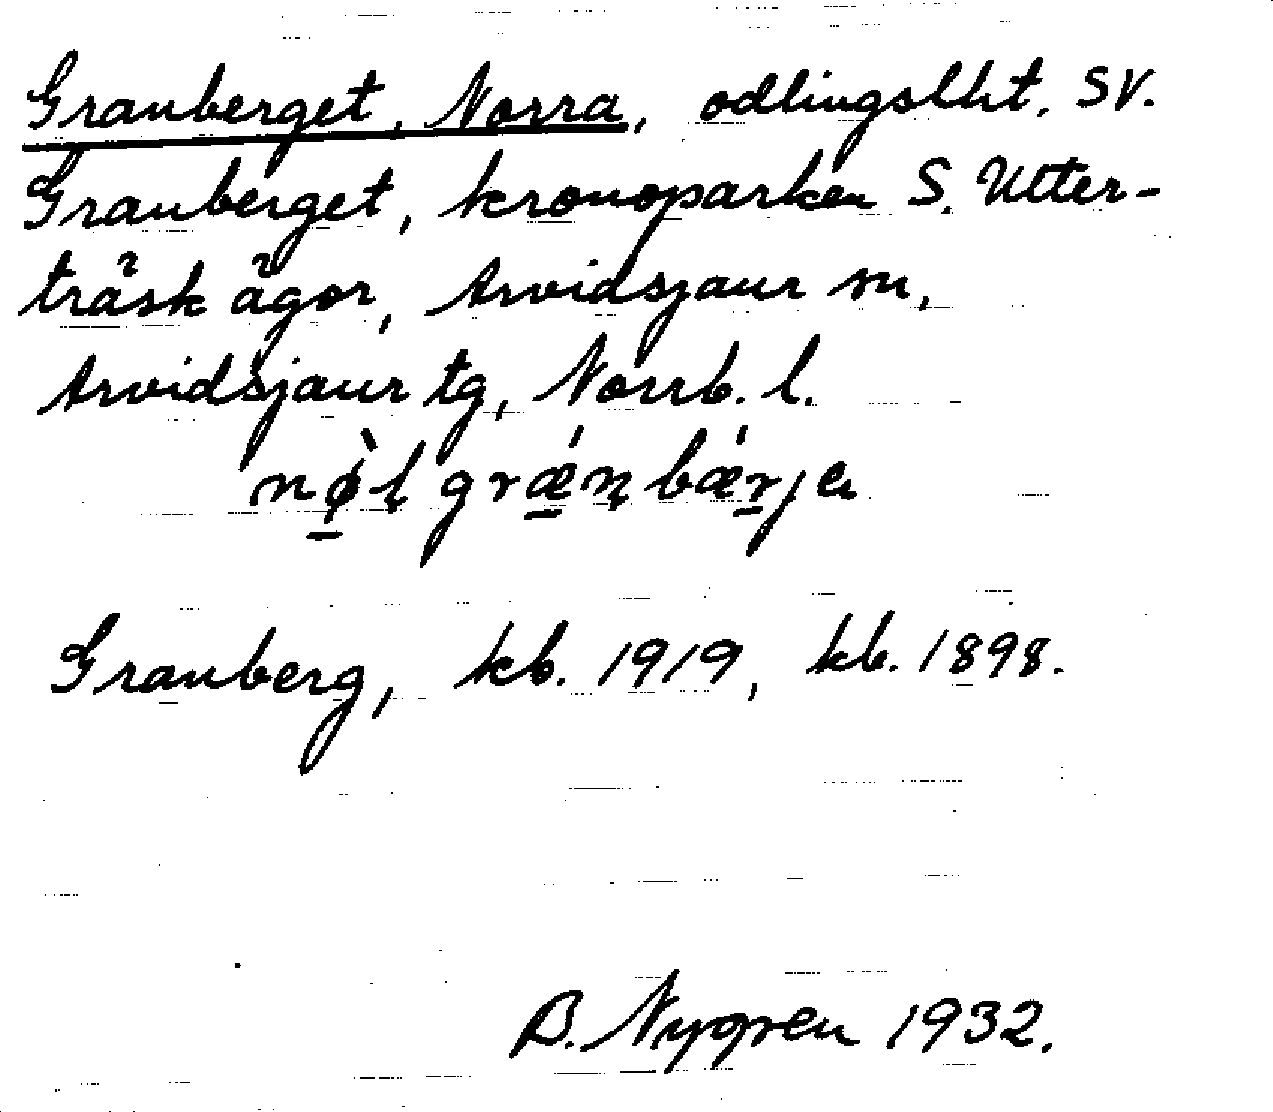 Granberget, Norra, odlingslht, SV.
Granberget, kronoparken S. Utter-
träsk ägor, Arvidsjaur sn,
Arvidsjaur tg, Norrb. l.
nø̀l grǽn bǽrjɐ
Granberg, kb. 1919, kb. 1898.
B. Nygren 1932.